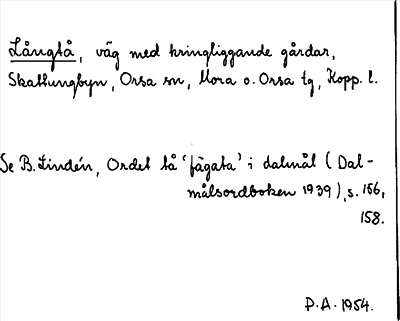 Långtå, väg med kringliggande gårdar,
Skattungbyn, Orsa sn, Mora o. Orsa tg, Kopp. l.
Se B. Lindén, Ordet tå 'fägata' i dalmål (Dal-
målsordboken 1939), s. 156,
158.
P.A. 1954.